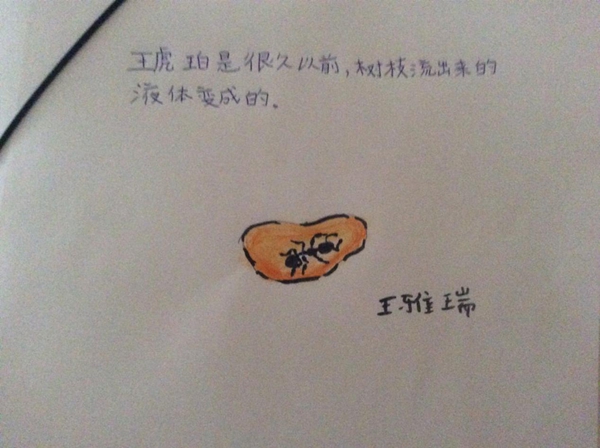 琥珀是很久以前,树枝流出来的
液体变成的。
王雅瑞